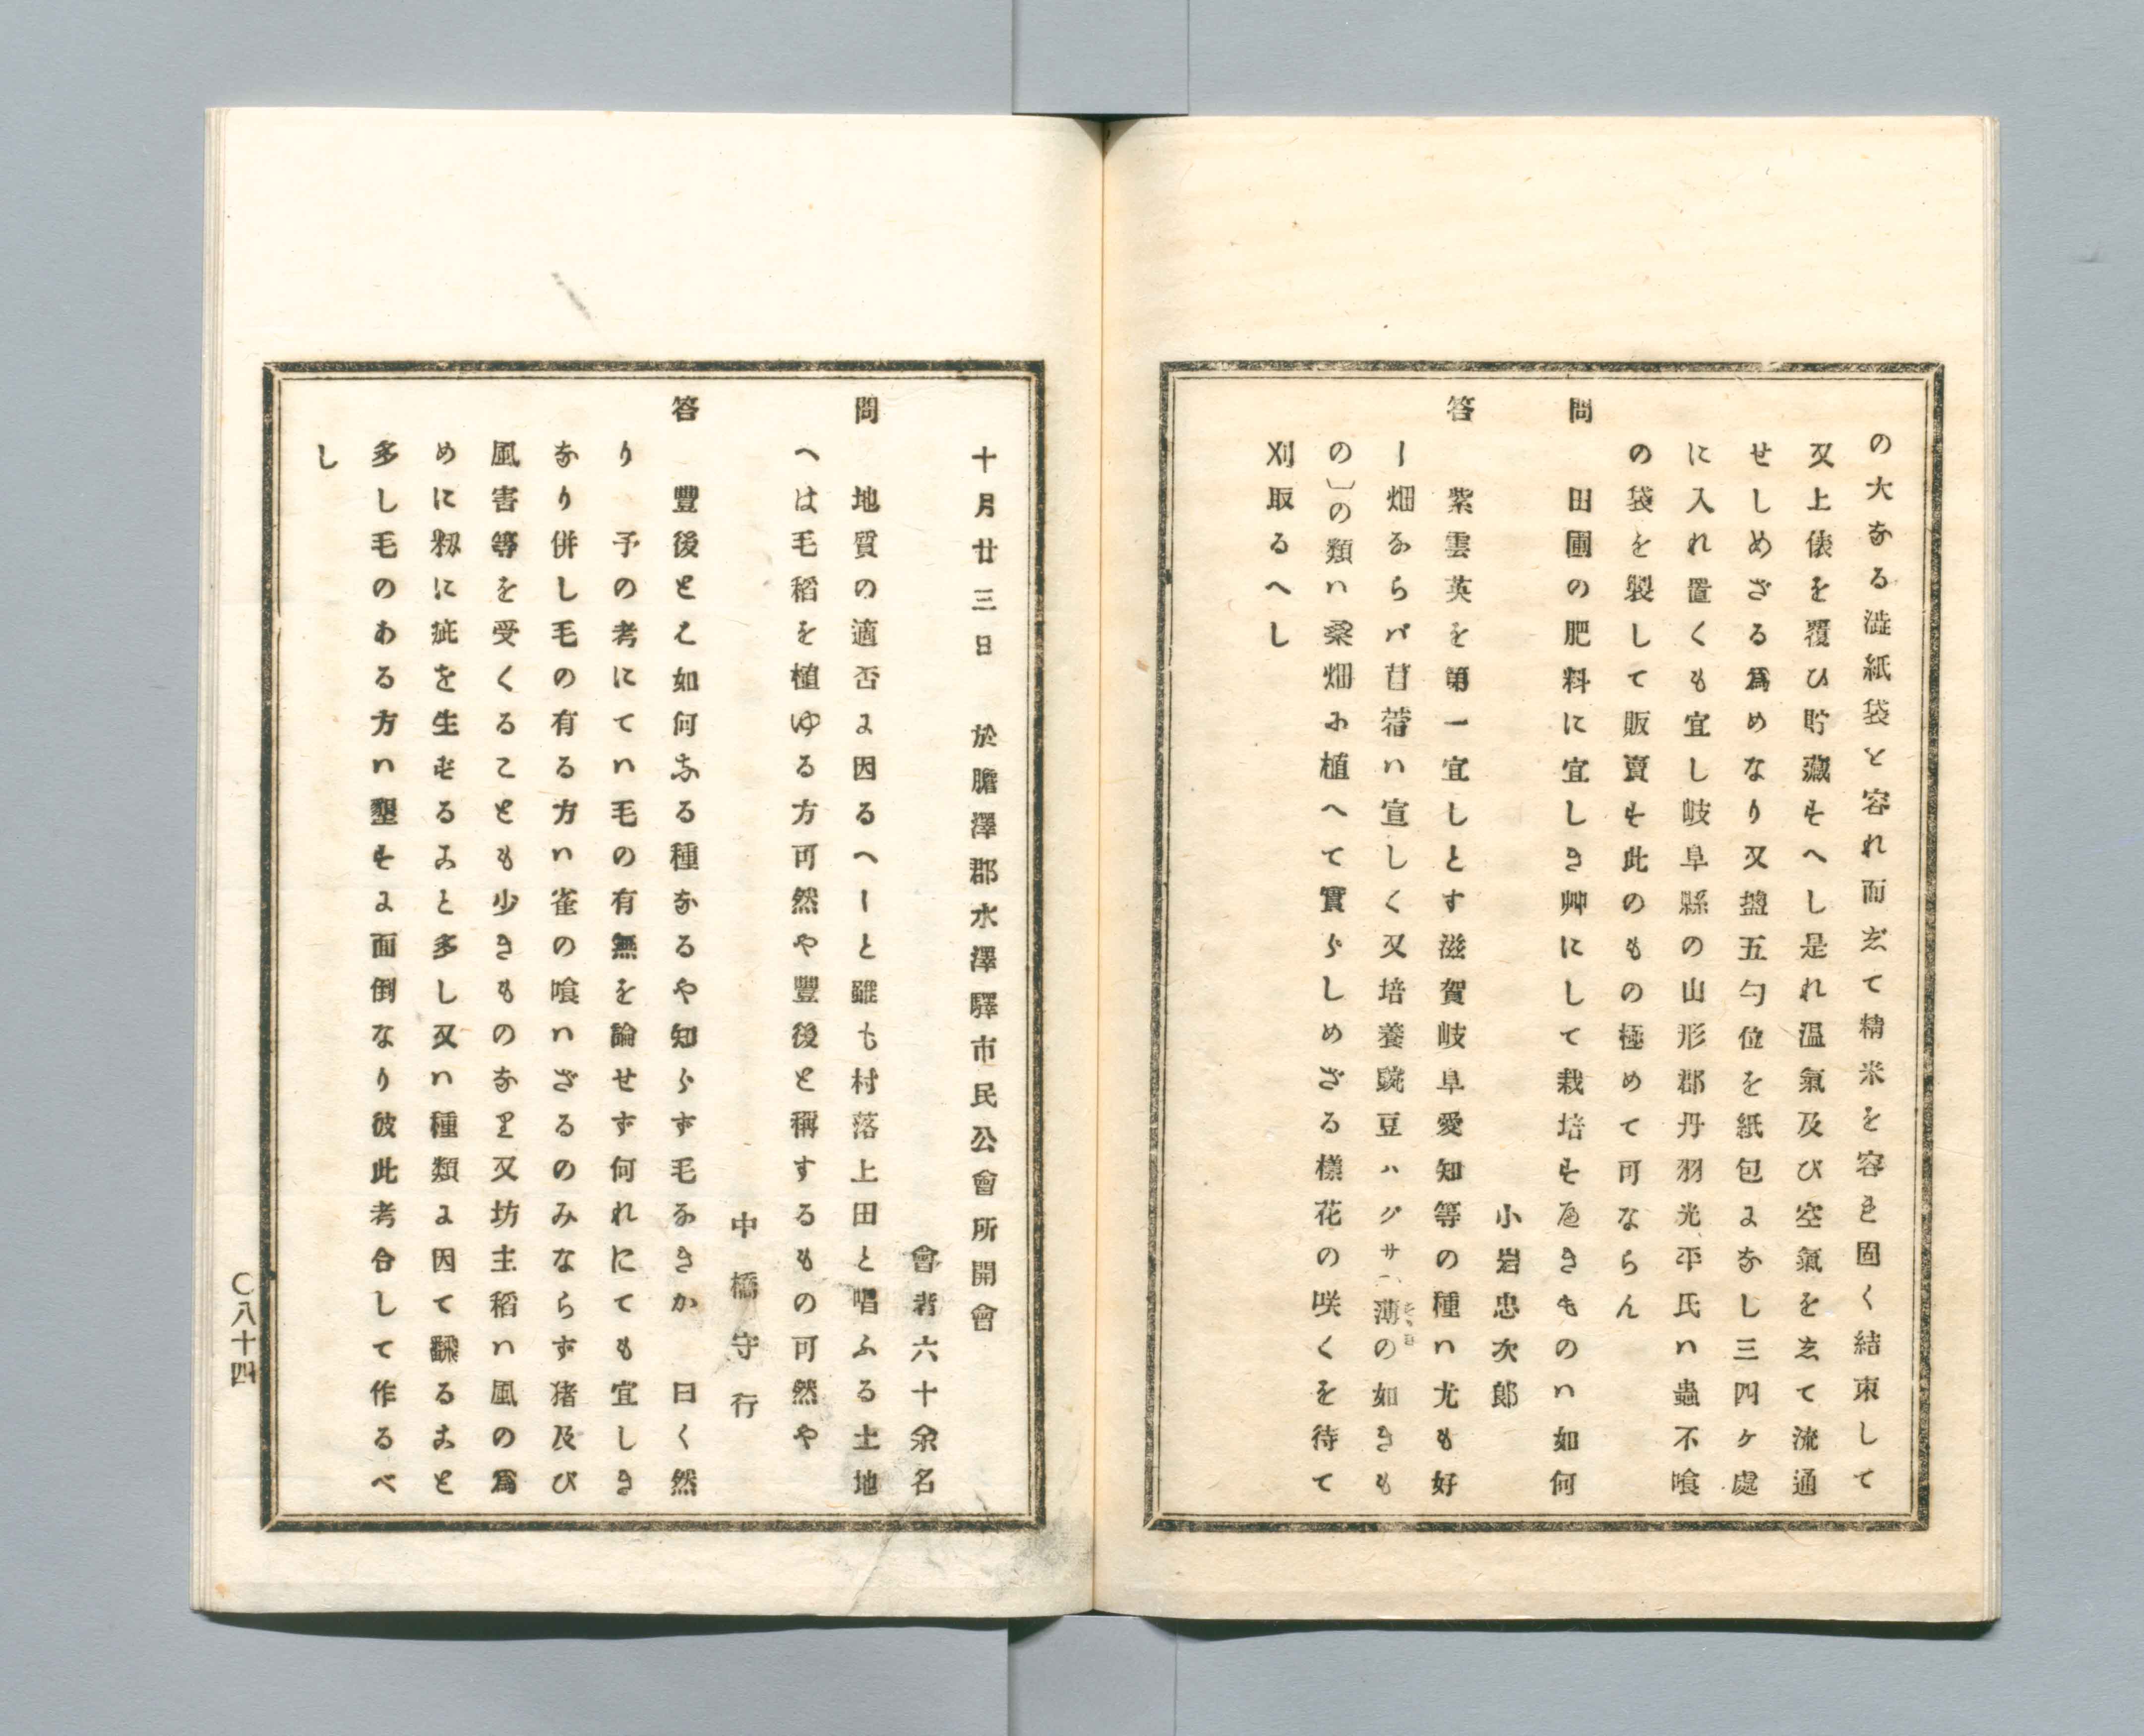 の大なる澁紙袋と容れ而志て精米を容き固く結束して
又上俵を覆ひ貯藏すへし是れ温氣及び空氣を志て流通
せしめざる爲めなり又盬五勺位を紙包よなし三四ヶ處
に入れ置くも宜し岐阜縣の山形郡丹羽光平氏ハ蟲不喰
の袋を製して販賣す此のもの極めて可ならん
問　田圃の肥料に宜しき艸にして栽培すべきものハ如何
小岩忠次郎
答　紫雲英を第一宜しとす滋賀岐阜愛知等の種ハ尤も好
し畑ならバ苜蓿ハ宜しく又培養豌豆ハクサ（薄の如きも
の）の類ハ桑畑に植へて實らしめざる樣花の咲くを待て
刈取るへし
十月廿三日　於膽澤郡水澤驛市民公會所開會
會者六十余名
問　地質の適否よ因るへしと雖も村落上田と唱ふる土地
へは毛稻を植ゆる方可然や豐後と稱するもの可然や
中橋守行
答　豐後とは如何なる種なるや知らず毛なきか　曰く然
り　予の考にてハ毛の有無を論せず何れにても宜しき
なり併し毛の有る方ハ雀の喰ハざるのみならず猪及び
風害等を受くることも少きものなり又坊主稻ハ風の爲
めに籾に疵を生ずること多し又ハ種類よ因て飜るゝこと
多し毛のある方ハ墾すよ面倒なり彼此考合して作るべ
し
〇八十四